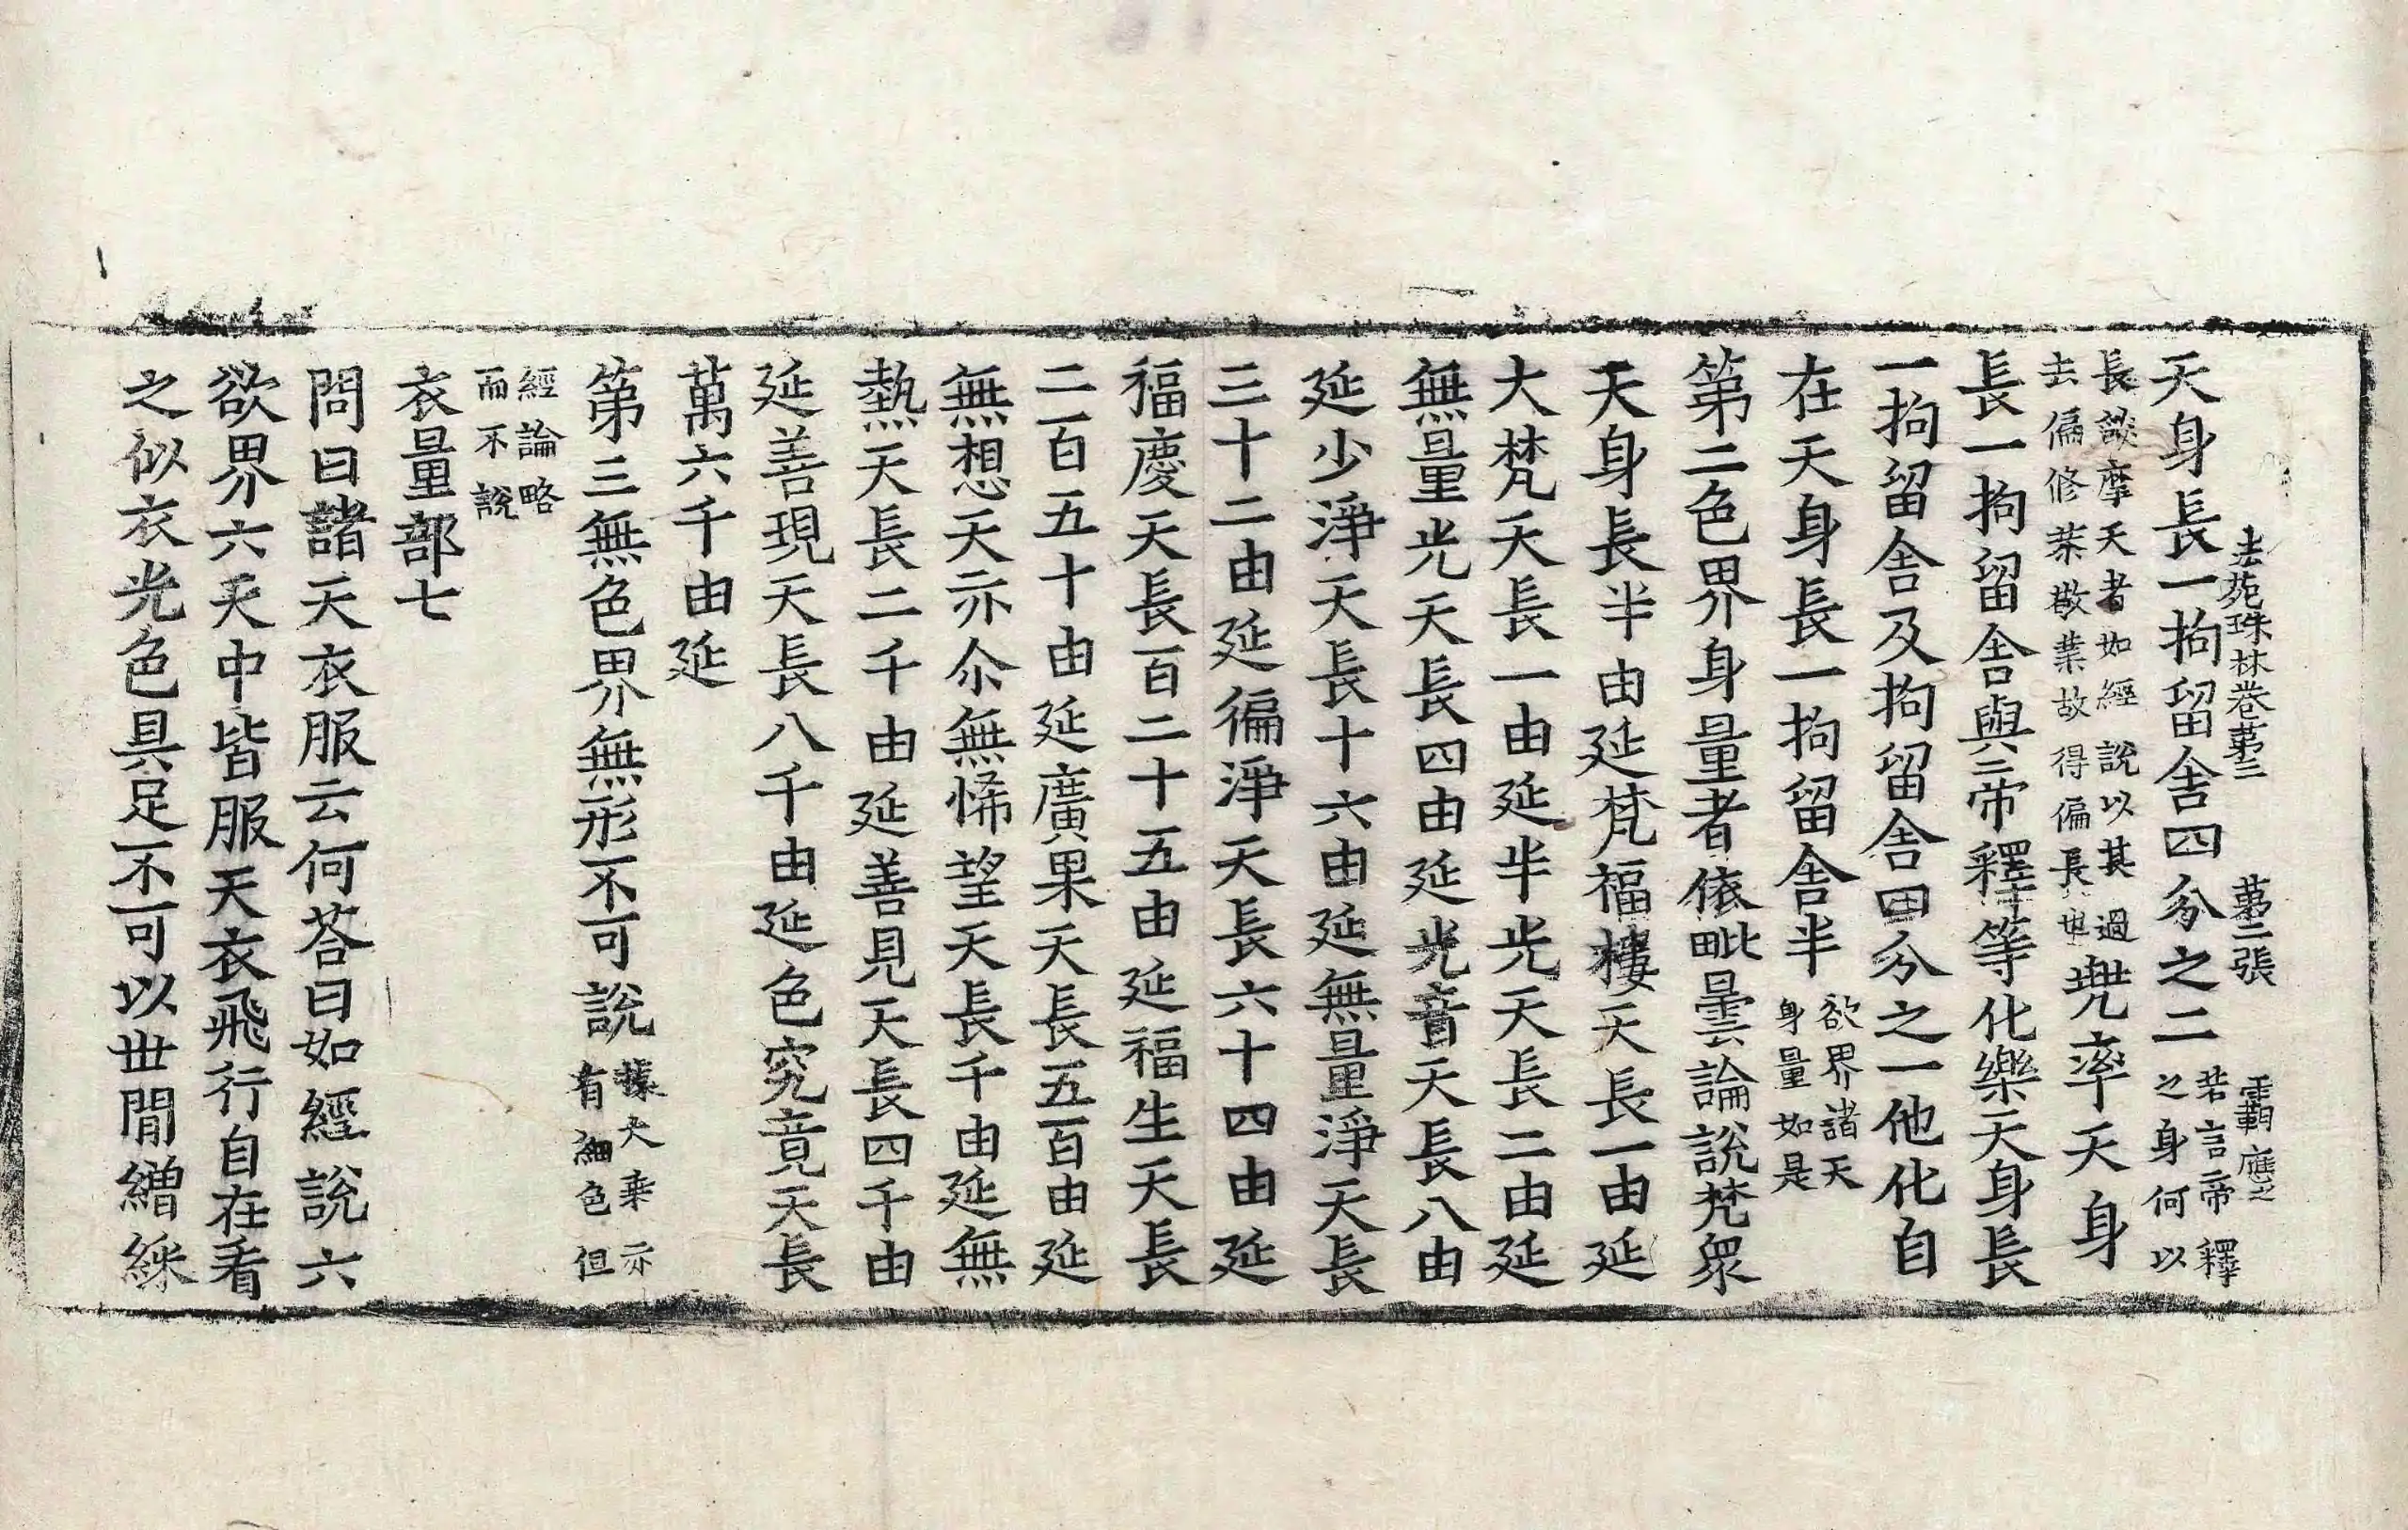 天身長一拘留舍四分之二若言帝釋之身何以
法苑珠林卷第三 第二張 霸 應之
長談摩天者如經說以其過去偏修業敬業故得偏長也兠率天身
長一拘留舍與帝釋等化樂天身長
一拘留舍及拘留舍四分之一他化自
在天身長一拘留舍半欲界諸天身量如是
第二色界身量者依毗曇論說梵眾
天身長半由延梵福樓天長一由延
大梵天長一由延半光天長二由延
無量光天長四由延光音天長八由
延少淨天長十六由延無量淨天長
三十二由延徧淨天長六十四由延
福慶天長百二十五由延福生天長
二百五十由延廣果天長五百由延
無想天亦尒無悕望天長千由延無
熱天長二千由延善見天長四千由
延善現天長八千由延色究竟天長
萬六千由延
第三無色界無形不可說據大乘亦有細色但
經論略而不說
衣量部七
問曰諸天衣服云何荅曰如經說六
欲界六天中皆服天衣飛行自在看
之似衣光色具足不可以世間繒綵